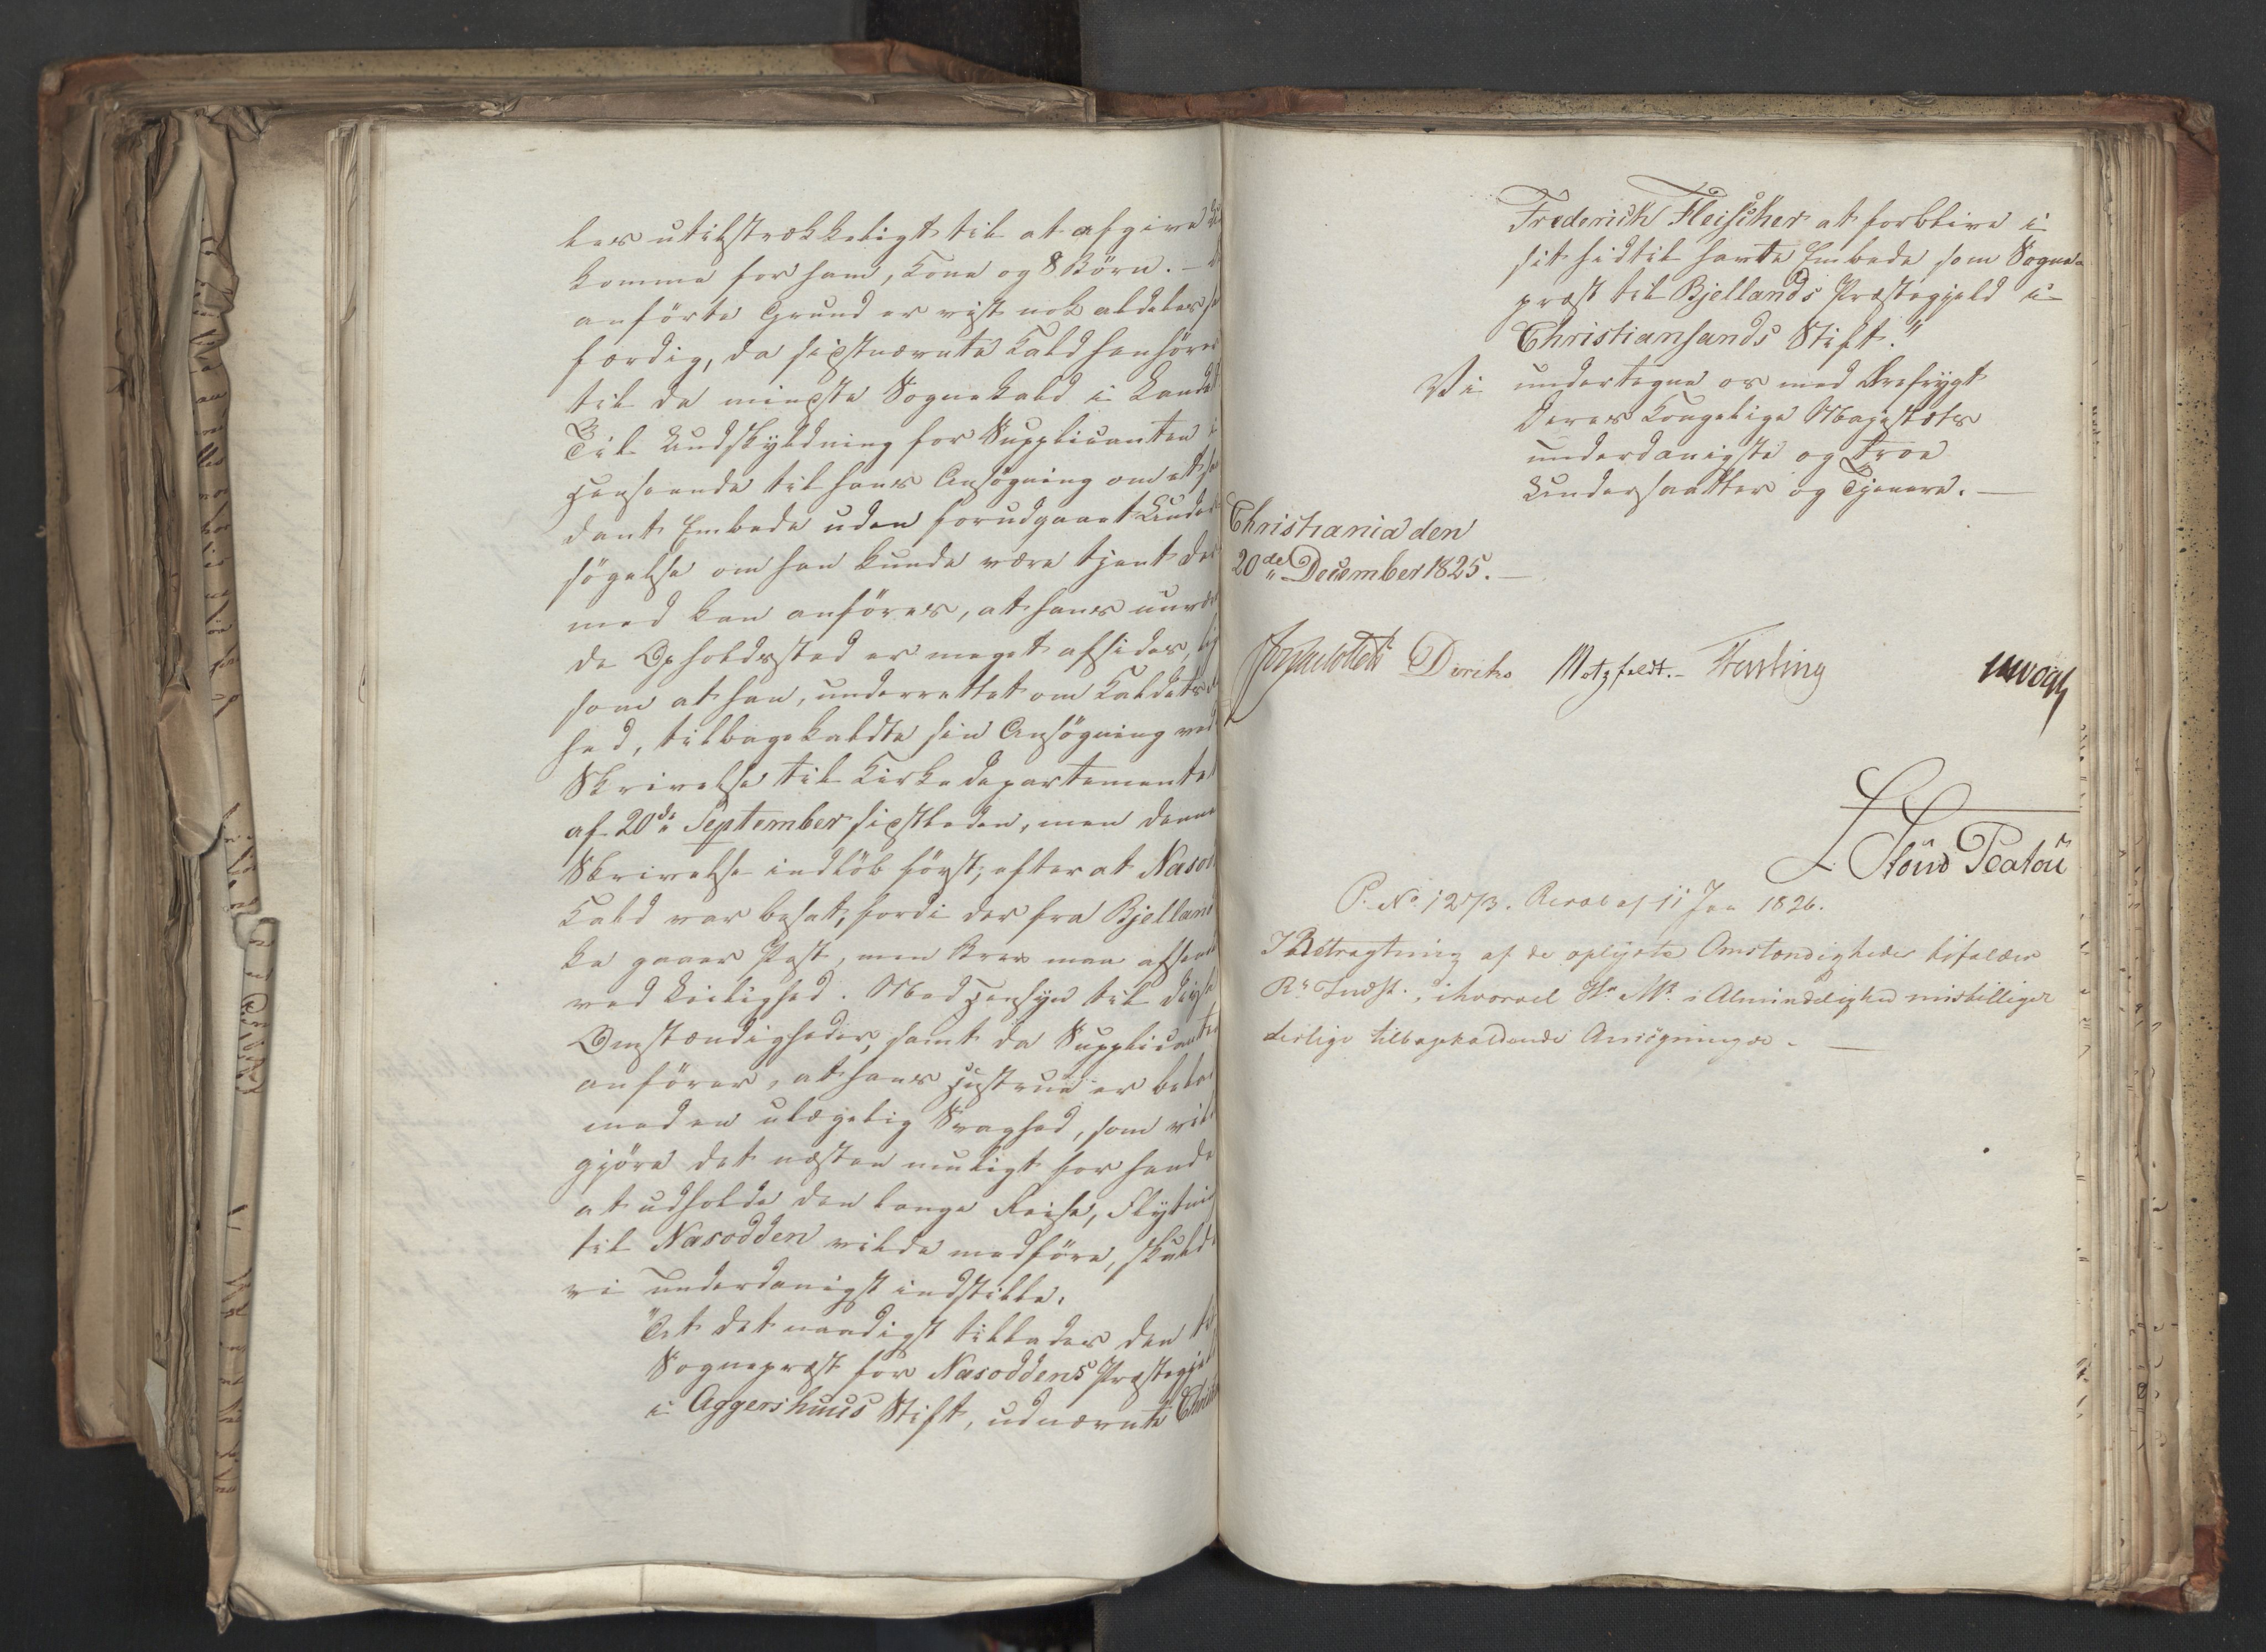 les utilstrækkeligt til at afgive
komme for ham, Kone og 8 Börn. –
anförte Grund er vist nok aldeles
færdig, da sidstnævnte Kald henhörer
til de mindste Sognekald i Landet
Til Undskyldning for Supplicanten i
Henseende til hans Ansögning om et
dant Embede uden forudgaaet Under
sögelse om han kunde være tjent der
med kan anföres, at hans nuvæ
de Opholdssted er meget afsides,
som at han, underrettet om Kaldets
hed, tilbagekaldte sin Ansögning ved
Skrivelse til Kirkedepartementet
af 20de September sidstleden, men denne
Skrivelse indlöb först, efter at Nasod
Kald var besat, fordi der fra Bjelland
ke gaaer Post, men Brev maa afsend
ved Leilighed. Med Hensyn til disse
Omstændigheder, samt da Supplicanten
anförer, at hans Hustrue er bela
med en ulægelig Svaghed, som vil
gjöre det næsten umuligt for hende
at udholde den lange Reise, Flytning
til Nasodden vilde medföre, skulde
vi underdanigst indstille:
"At det naadigst tillades den til
Sognepræst for Nasoddens Præstegjeld
i Aggershuus Stift, udnævnte Christ
Frederich Fleischer at forblive i
sit hidtil havte Embede som Sogne-
præst til Bjellands Præstegjeld i
Christiansands Stift."
Vi undertegne os med Ærefrygt
Deres Kongelige Majestæts
underdanigste og troe
Undersaatter og Tjenere. —
Christiania den
20de December 1825. —
Diriks Motzfeldt. – Fasting
L Stoud Platou
P. No 1273. Resol af 11 Jan 1826.
I Betragtning af de oplyste Omstændigheder bifaldes
Rs Indst., ihvorvel Hs Mt i Almindelighed misbilliger
deslige tilbagekaldende Ansögninger. —